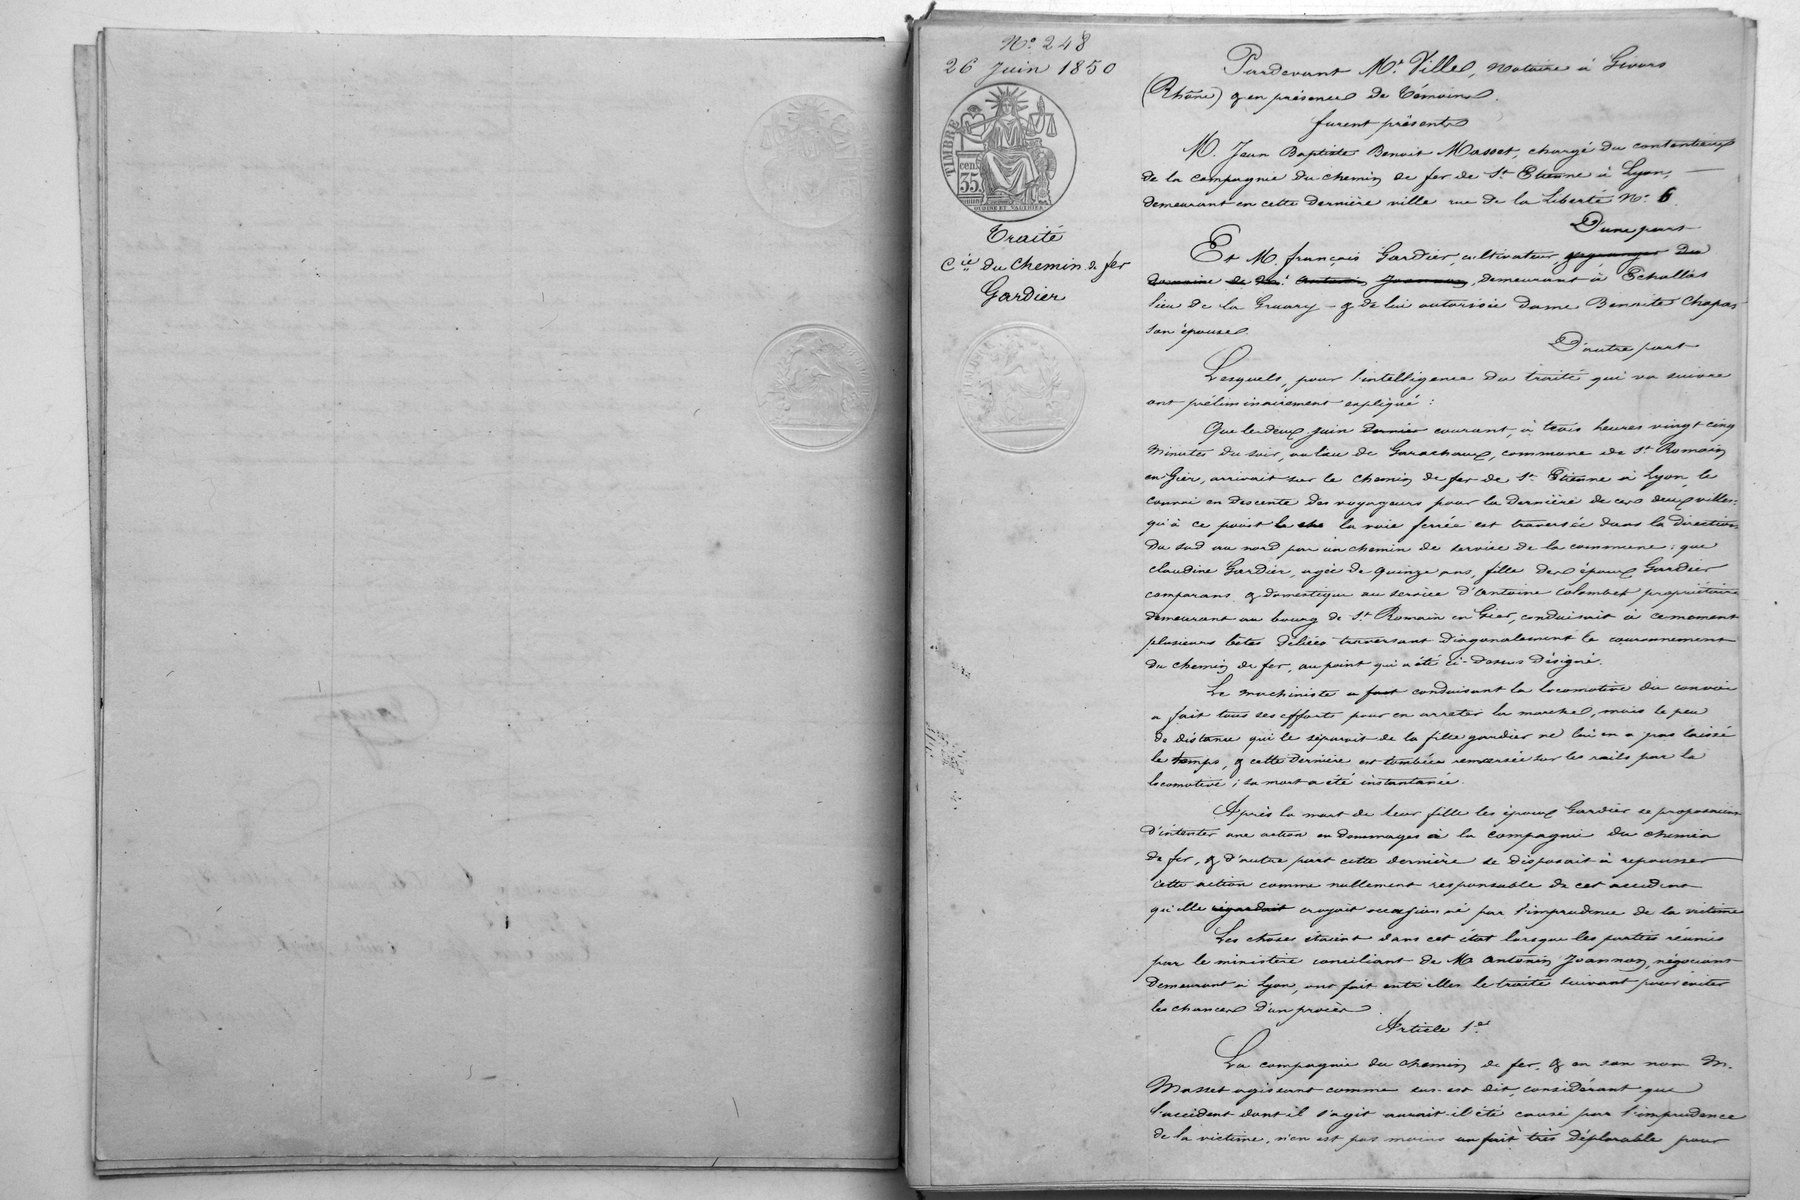 N.o 248
26 Juin 1850
TIMBRE
cen.
35
OUDINÉ ET VAUTHIER
Traité
C.ie du Chemin de fer
Gardier
Pardevant M.e Ville, Notaire à Givors
(Rhône) & en présence de témoins.
furent présents
M. Jean Baptiste Benoit Masset, chargé du contentieux
de la compagnie du chemin de fer de S.t Etienne à Lyon,
demeurant en cette dernière ville rue de la Liberté N.o 6
D'une part
Et M. françois Gardier, cultivateur du
demeurant à Echallas
lieu de la Gravy — & de lui autorisée Dame Benoite Chapas
son épouse.
D'autre part
Lesquels, pour l'intelligence du traité qui va suivre
ont préliminairement expliqué :
Que le deux juin dernier courant, à trois heures vingt cinq
minutes du soir, au lieu de Garachoux, commune de S.t Romain
en Gier, arrivait sur le chemin de fer de S.t Etienne à Lyon, le
convoi en descente des voyageurs pour la dernière de ces deux villes :
qu'à ce point la che la voie ferrée est traversée dans la direction
du sud au nord par un chemin de service de la commune ; que
claudine Gardier, agée de quinze ans, fille des époux Gardier
comparans & domestique au service d'Antoine Colombet propriétaire
demeurant au bourg de S.t Romain en Gier, conduisait à ce moment
plusieurs betes déliées traversant diagonalement le couronnement
du chemin de fer, au point qui a été ci-dessus désigné.
Le machiniste a fait conduisant la locomotive du convoi
a fait tous ses efforts pour en arreter la marche, mais le peu
de distance qui le séparait de la fille gardier ne lui en a pas laissé
le temps, & cette dernière est tombée renversée sur les rails par la
locomotive ; sa mort a été instantanée.
Après la mort de leur fille les époux Gardier se proposaient
d'intenter une action en dommages à la compagnie du chemin
de fer, & d'autre part cette dernière se disposait à repousser
cette action comme nullement responsable de cet accident
qu'elle regardait croyait occasionné par l'imprudence de la victime
Les choses étaient dans cet état lorsque les parties réunies
par le ministère conciliant de M Antonin Joannon, négociant
demeurant à Lyon, ont fait entr'elles le traité suivant pour éviter
les chances d'un procès.
Article 1.er
La compagnie du chemin de fer, & en son nom M.
Masset agissant comme sus-est dit, considérant que
l'accident dont il s'agit aurait-il été causé par l'imprudence
de la victime, n'en est pas moins un fait très déplorable pour